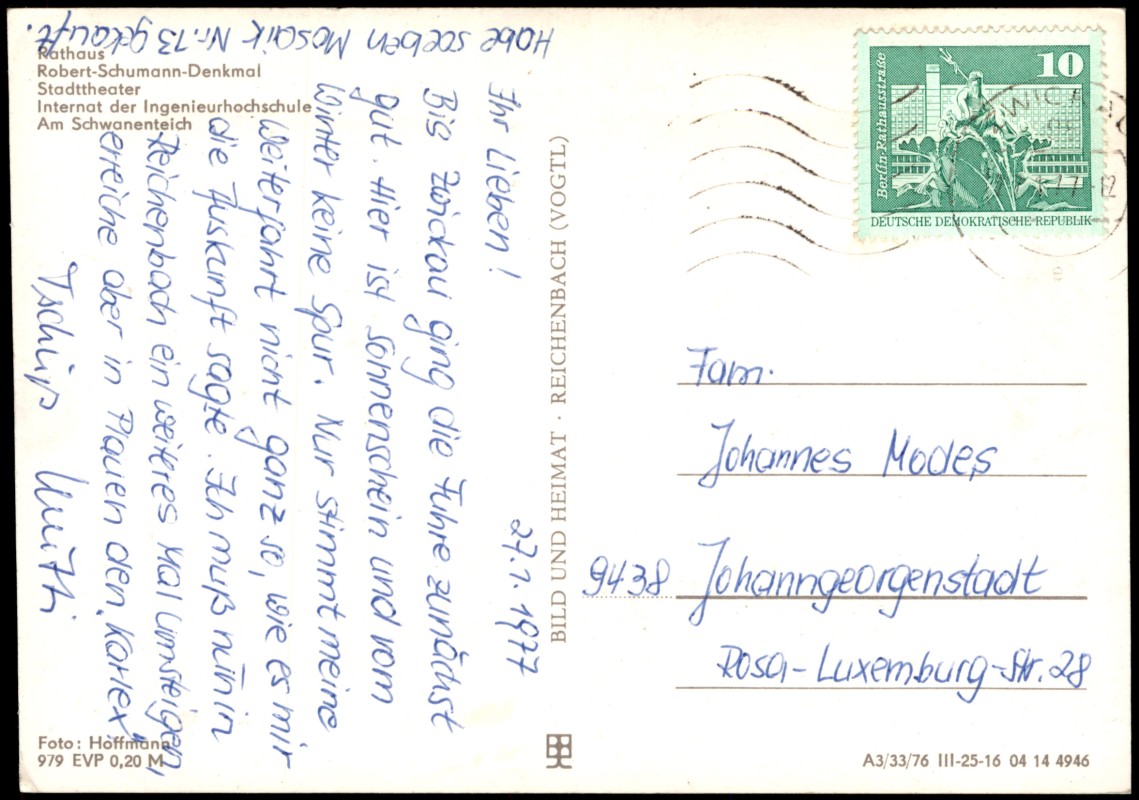 Rathaus
Robert-Schumann-Denkmal
Stadttheater
Internat der Ingenieurhochschule
Am Schwanenteich
Habe soeben Mosaik Nr. 13 gekauft.
27.1.1977
Ihr Lieben!
Bis Zwickau ging die Fuhre zunächst
gut. Hier ist Sonnenschein und vom
Winter keine Spur. Nur stimmt meine
Weiterfahrt nicht ganz so, wie es mir
die Auskunft sagte. Ich muß nun in
Reichenbach ein weiteres Mal umsteigen,
erreiche aber in Plauen den "Karlex"
Tschüß
Foto: Hoffmann
979 EVP 0,20 M
BILD UND HEIMAT · REICHENBACH (VOGTL)
10
Berlin-Rathausstraße
DEUTSCHE DEMOKRATISCHE REPUBLIK
Fam.
Johannes Modes
9438 Johanngeorgenstadt
Rosa-Luxemburg-Str. 28
A3/33/76 III-25-16 04 14 4946